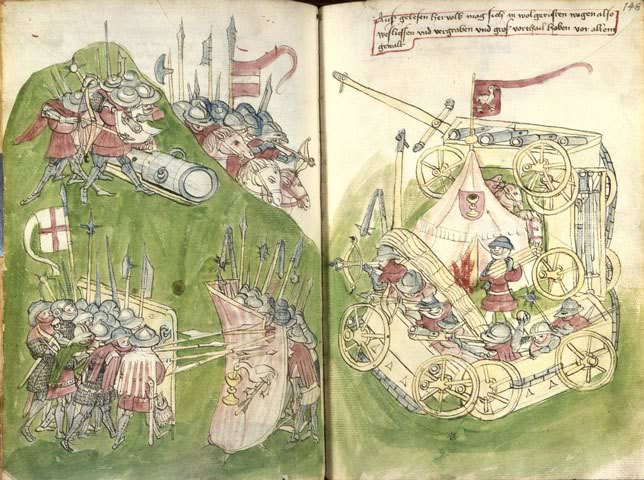 148
Auß gelesen hervolk mag sich in wolgeristen wagen also
besliessen vnd vergraben vnd groß vorttail haben vor allem
gewalt